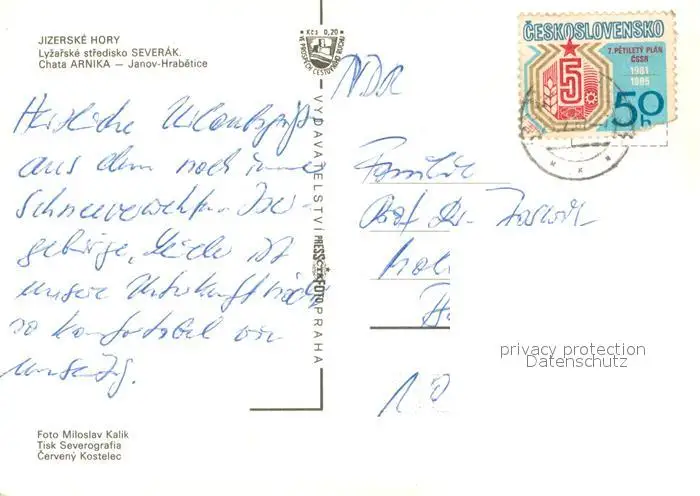 JIZERSKÉ HORY
Lyžařské středisko SEVERÁK.
Chata ARNIKA — Janov-Hrabětice
Kčs 0,20
VE PROSPĚCH CESTOVNÍHO RUCHU
ČESKOSLOVENSKO
7. PĚTILETÝ PLÁN
ČSSR
1981
1985
5
50
h
NDR
Herzliche Urlaubsgrüße
aus dem noch immer
schneeverwehten Iser-
gebirge. Leider ist
unsere Unterkunft nicht
so komfortabel wie
Familie
Prof. Dr.
VYDAVATELSTVÍ PRESSFOTO PRAHA
Foto Miloslav Kalík
Tisk Severografia
Červený Kostelec
privacy protection
Datenschutz